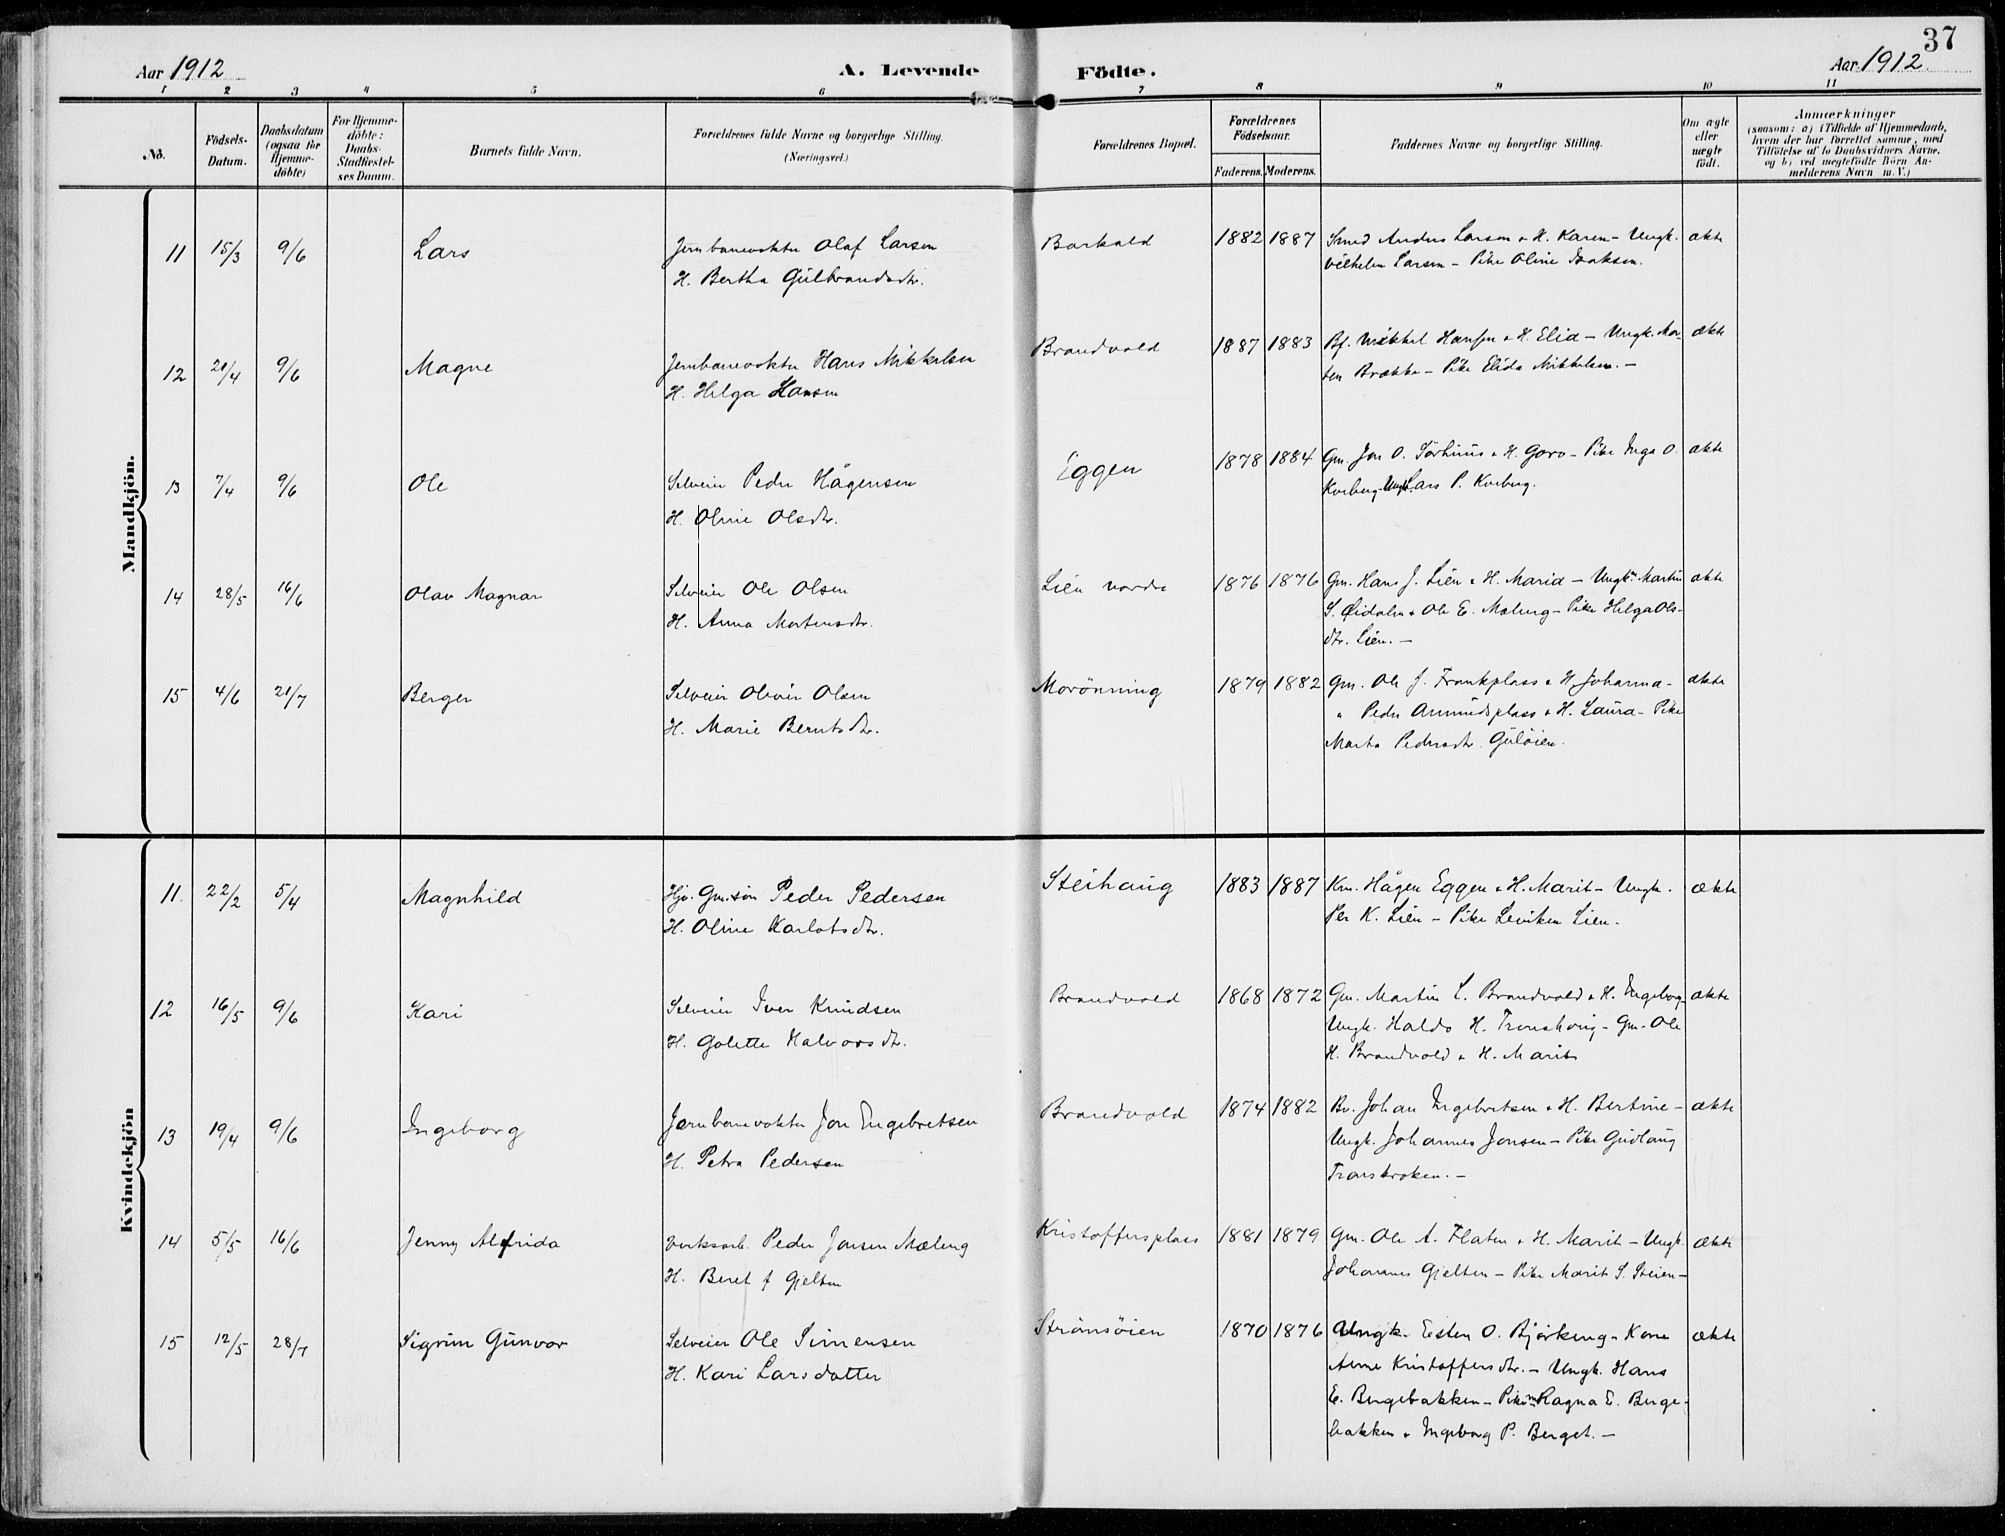 37
Aar 1912
A. Levende Födte.
Aar 1912
1 2 3 4 5 6 7 8 9 10 11
No.
Födsels-Datum.
Daabsdatum (ogsaa for Hjemme-döbte)
For Hjemme-döbte: Daabs-Stadfæstel-ses Datum.
Barnets fulde Navn.
Forældrenes fulde Navne og borgerlige Stilling. (Næringsvei.)
Forældrenes Bopæl.
Forældrenes Födselsaar.
Faderens. Moderens.
Faddernes Navne og borgerlige Stilling.
Om ægte eller uægte født.
Anmærkninger
(saasom: a) i Tilfælde af Hjemmedaab,
hvem der har forrettet samme, med
Tilföielse af to Daabsvidners Navne.
og b) ved uegtefödte Börn An-
melderens Navn m. V.)
Mandkjön.
11 15/3 9/6 Lars Jernbanevokter Olaf Larsen Barkald 1882 1887 Smed Anders Larsen & H. Karen - Ungk. ækte
H. Bertha Gulbrandsdtr. Vilhelm Larsen - Pike Oline Isaksen.
12 20/4 9/6 Magne Jernbanevokter Hans Mikkelsen Brandvold 1887 1883 Bf. Mikkel Hansen & H. Elia - Ungk. Mor- ækte
H. Helga Hansen ten Brække - Pike Elida Mikkelsen. -
13 7/4 9/6 Ole Selveier Peder Hågensen Eggen 1878 1884 Gm. Jon O. Sörhuus & H. Goro - Pike Inga O. ækte
H. Oline Olsdtr. Kveberg - Ungk. Lars P. Kveberg.
14 28/5 16/6 Olav Magnar Selveier Ole Olsen Lien nordre 1876 1876 Gm. Hans J. Lien & H. Maria - Ungkm Martin ækte
H. Anna Mortensdtr. S. Øidalen & Ole E. Mæleng - Pike Helga Ols-
dtr. Lien. -
15 4/6 21/7 Berger Selveier Oliver Olsen Morönning 1879 1882 Gm. Ole J. Frankplass & H. Johanna - ækte
H. Marie Berntsdtr. " Peder Amundsplass & H. Laura - Pike
Marta Pedersdtr. Gulöien.
Kvindekjön
11. 22/2 5/4 Magnhild Hjv. Gm.sön Peder Pedersen Steihaug 1883 1887 Km. Hågen Eggen & H. Marit - Ungk. ækte
H. Oline Karlotsdtr. Per K. Lien - Pike Leviken Lien.
12 16/5 9/6 Kari Selveier Iver Knudsen Brandvold 1868 1872 Gm. Martin L. Brandvold & H. Ingeborg - ækte
H. Golette Halvorsdtr. Ungk. Haldo H. Tronshoug - Gm. Ole
H. Brandvold & H. Marit
13 19/4 9/6 Ingeborg Jernbanevokter Jon Engebretsen Brandvold 1874 1882 Bv. Johan Ingebretsen & H. Bertine - ækte
H. Petra Pedersen Ungk. Johannes Jonsen - Pike Gudlaug
14 5/5 16/6 Jenny Alfrida Verksarb. Peder Jonsen Mæleng Kristoffersplass 1881 1879 Gm. Ole A. Flaten & H. Marit - Ungk. ækte
H. Beret f Gjelten Johannes Gjelten - Pike Marit S. Steien -
15 12/5 28/7 Sigrun Gunvor Selveier Ole Simensen Strömsöien 1870 1876 Ungk. Esten O. Bjørkeng - Kone ækte
H. Kari Larsdatter Anne Kristoffersdtr. - Ungk. Hans
E. Bergebakken - Pikerne Ragna E. Berge-
bakken & Ingeborg P. Berget. -